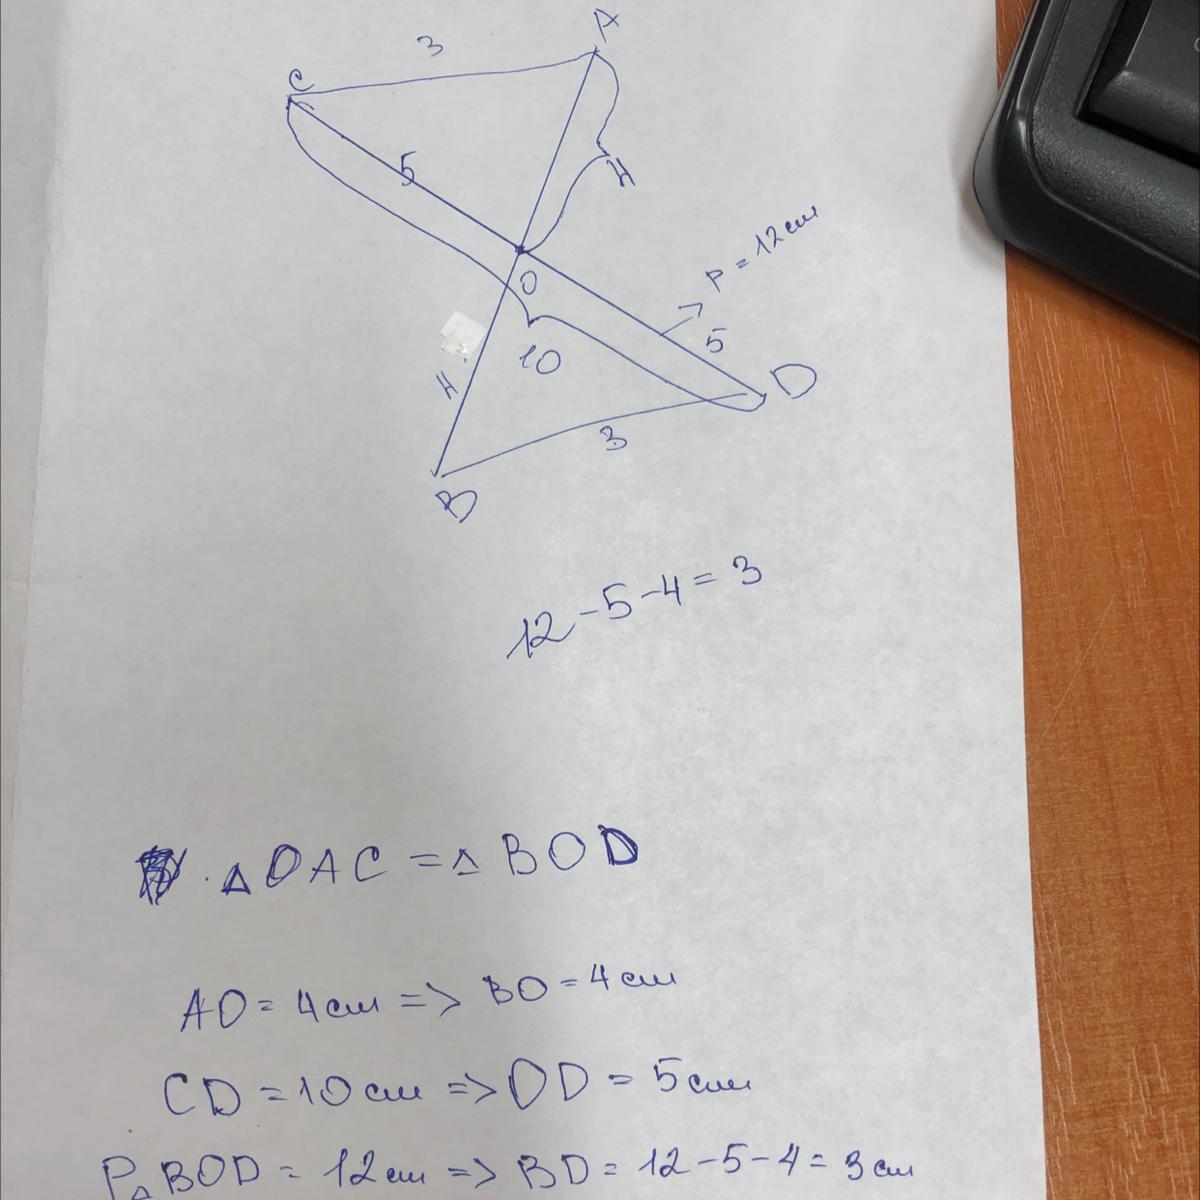 A
3
C
5
4
O
P = 12 см
5
10
4
D
3
B
12 - 5 - 4 = 3
△ OAC = △ BOD
AO = 4 см => BO = 4 см
CD = 10 см => OD = 5 см
P△ BOD = 12 см => BD = 12 - 5 - 4 = 3 см